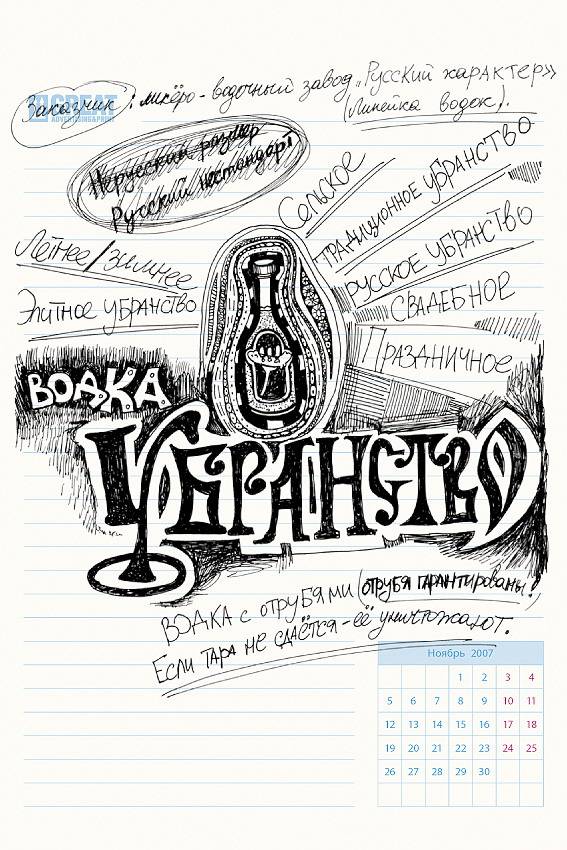 Заказчик: ликёро-водочный завод „Русский характер»
(линейка водок).
GREAT
ADVERTISING&PRINT
Нерусский размер
Русский
Сельское
традиционное убранство
русское убранство
Свадебное
Празничное
Летнее/зимнее
Элитное убранство
ВОДКА
Убранство
ВОДКА с отрубями (отрубя гарантированы!
Если тара не сдаётся - её уничтожают.
Ноябрь 2007
1 2 3 4
5 6 7 8 9 10 11
12 13 14 15 16 17 18
19 20 21 22 23 24 25
26 27 28 29 30